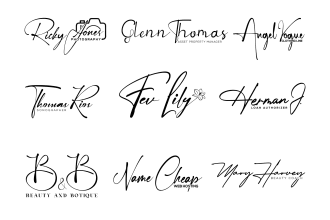 Ricky Jones
PHOTOGRAPHY
Glenn Thomas
ASSET PROPERTY MANAGER
Angel Vogue
Thomas Rios
SONGWRITER
Fev Lily
Herman J
LOAN AUTHORIZER
B&B
BEAUTY AND BOTIQUE
Name Cheap
WEB HOSTING
Mary Harvey
BEAUTY VIDEO